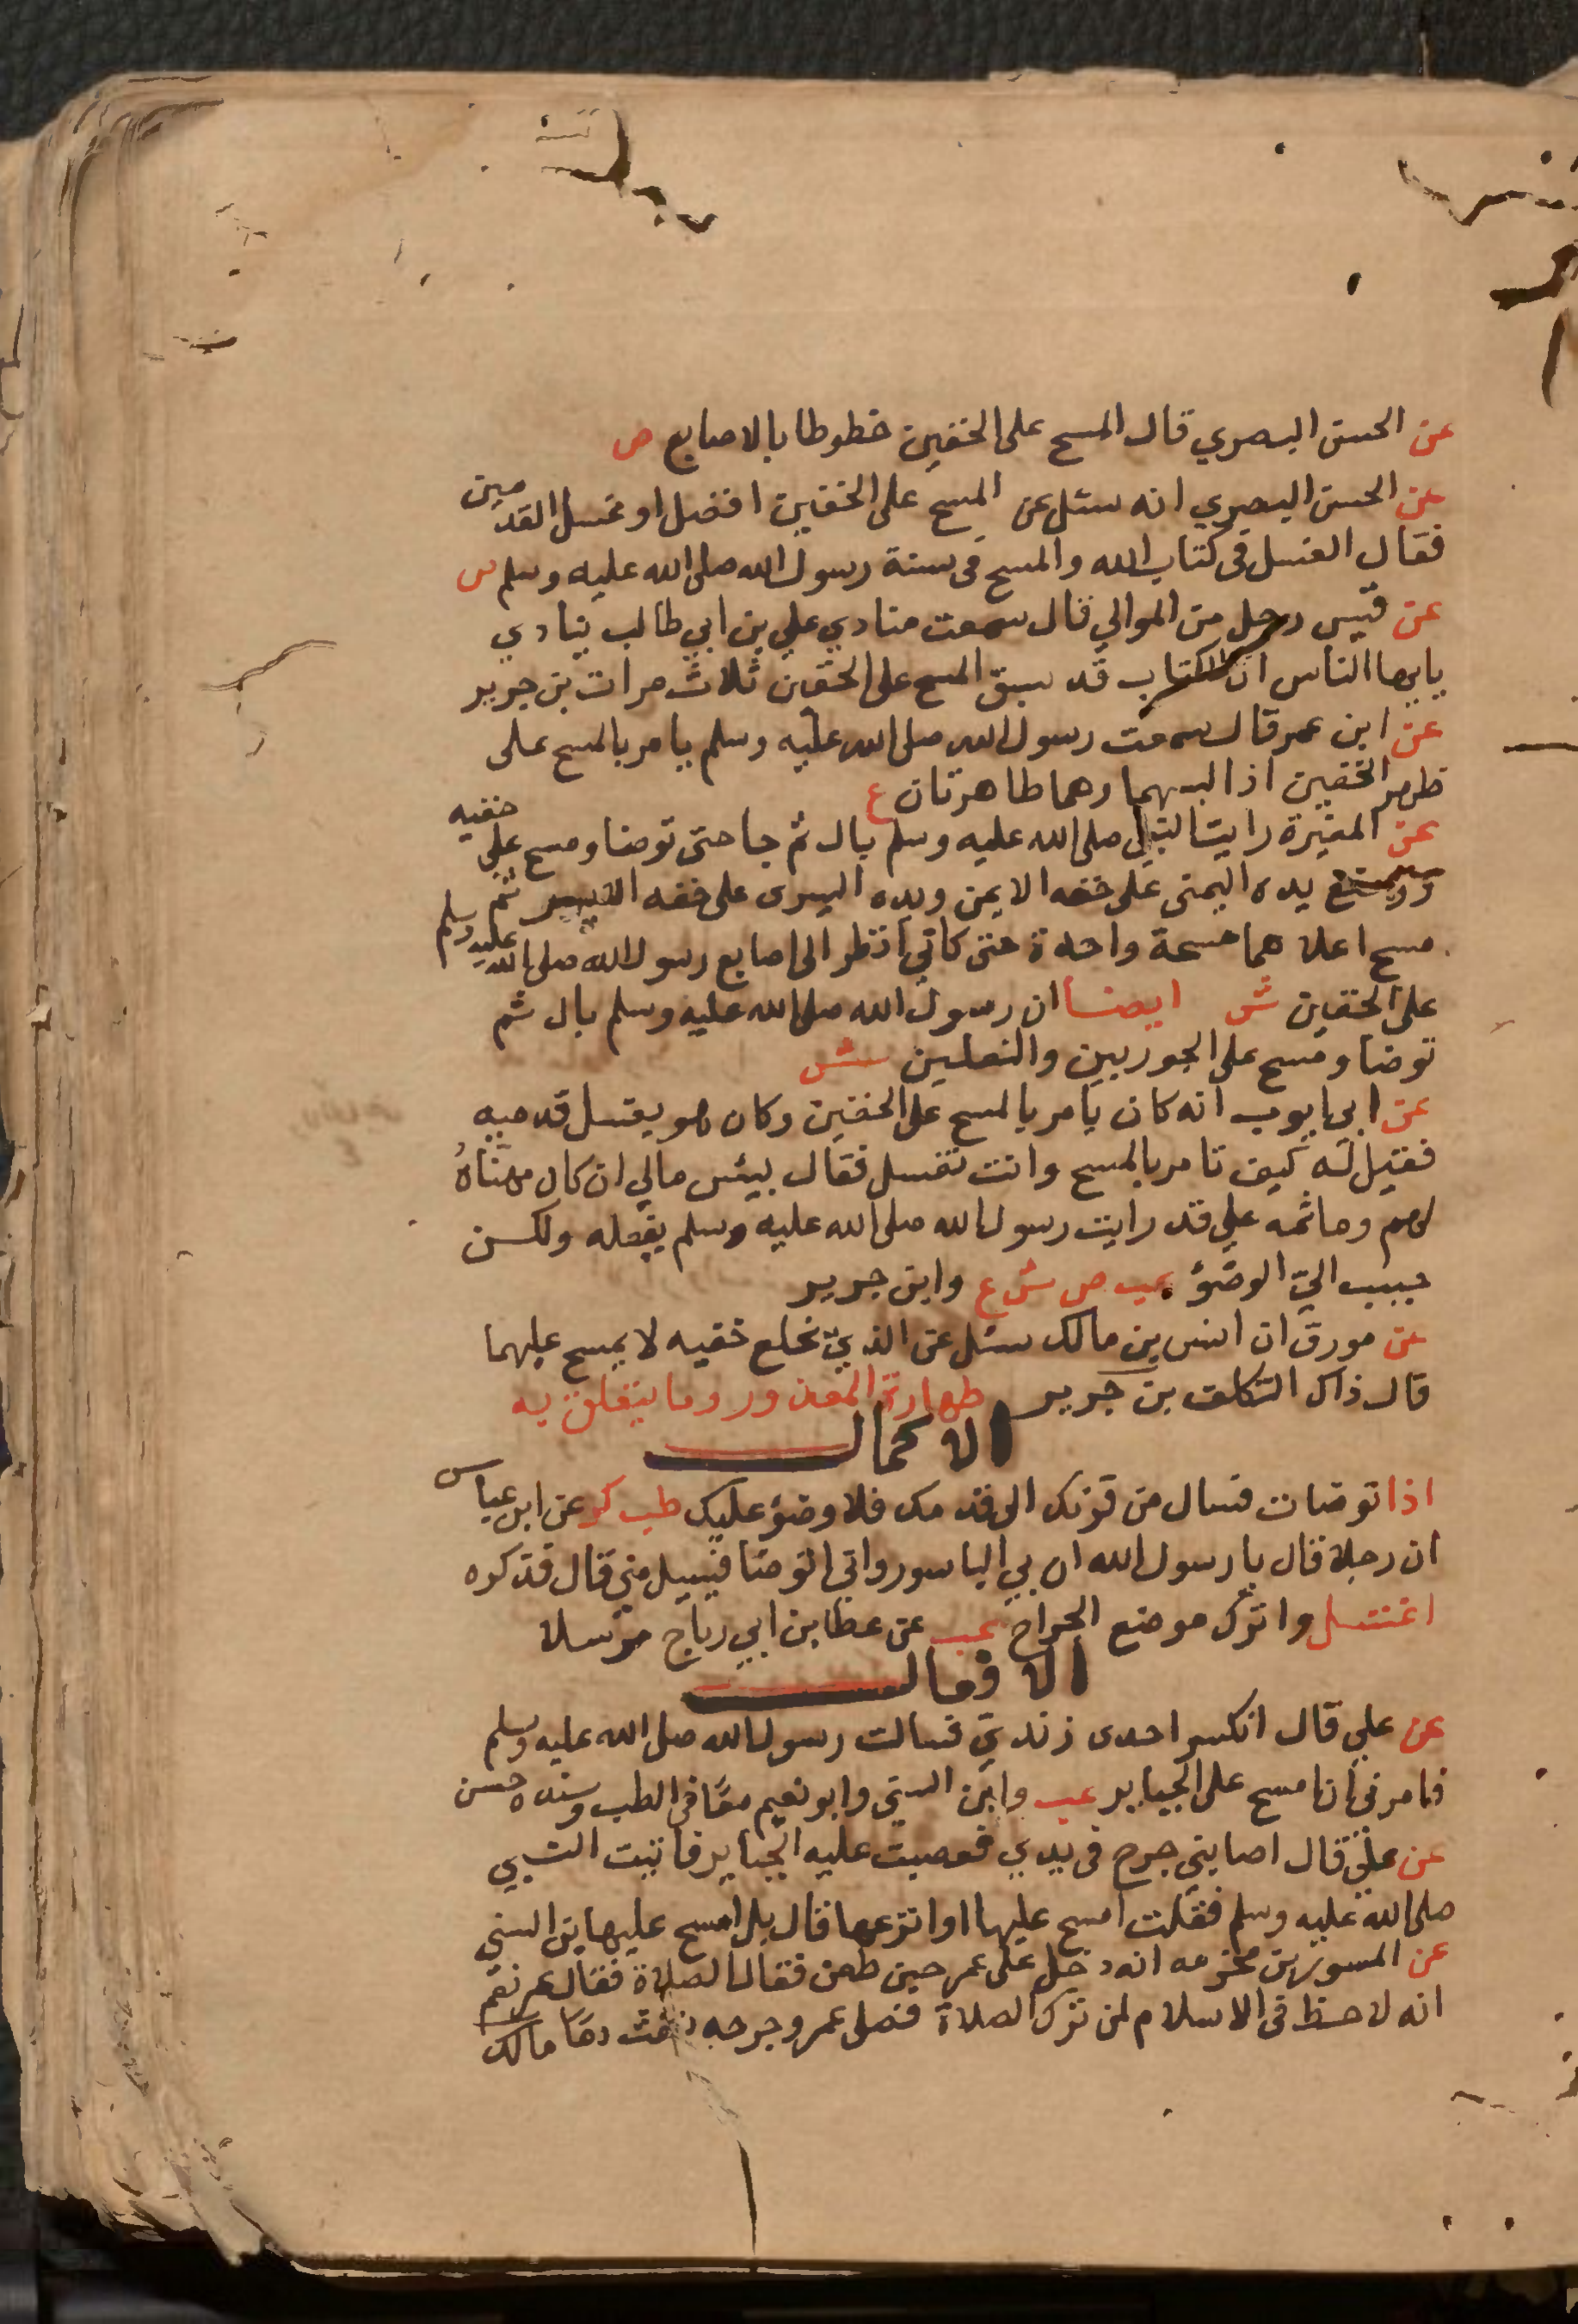 عن الحسن البصري قال المسح على الخفين خطوطا بالاصابع ص
عن الحسن البصري انه سئل عن المسح على الخفين افضل او غسل القدمين
فقال الغسل فى كتاب الله والمسح فى سنة رسول الله صلى الله عليه وسلم
عن قيس رجل من الموالي قال سمعت منادي علي بن ابي طالب ينادي
يايها الناس ان الكتاب قد سبق المسح على الخفين ثلاث مرات بن جرير
عن ابن عمر قال سمعت رسول الله صلى الله عليه وسلم يامر بالمسح على
ظهر الخفين اذا لبسهما وهما طاهرتان ع
عن المغيرة رايت النبي صلى الله عليه وسلم بال ثم جا حتى توضا ومسح على خفيه
ووضع يده اليمنى على خفه الايمن ويده اليسرى على خفه الايسر ثم
مسح اعلاهما مسحة واحدة حتى كاني انظر الى اصابع رسول الله صلى الله عليه وسلم
على الخفين ش ايضا ان رسول الله صلى الله عليه وسلم بال ثم
توضا ومسح على الجوربين والنعلين ش
عن ابي ايوب انه كان يامر بالمسح على الخفين وكان هو يغسل قدميه
فقيل له كيف تامر بالمسح وانت تغسل فقال بيئس مالي ان كان مهناه
لكم وماثمه علي قد رايت رسول الله صلى الله عليه وسلم يفعله ولكن
حبب الىّ الوضؤ عب ص ش ع وابن جرير
عن مورق ان انس بن مالك سئل عن الذي يخلع خفيه لا يمسح عليهما
قال ذاك التكلف بن جرير طهارة المعذور وما يتعلق به
الاكمال
اذا توضات فسال من قرنك الى قدمك فلا وضؤ عليك طب كر عن ابن عباس
ان رجلا قال يا رسول الله ان بي الباسور واني اتوضا فيسيل مني قال فذكره
اغتسل واترك موضع الجراح عب عن عطا بن ابي رباح مرسلا
الافعال
عن علي قال انكسر احدى زنديّ فسالت رسول الله صلى الله عليه وسلم
فامرني ان امسح على الجباير عب وابن السني وابو نعيم معًا فى الطب وسنده حسن
عن علي قال اصابني جرح فى يدي فعصبت عليه الجباير فاتيت النبي
صلى الله عليه وسلم فقلت امسح عليها او انزعها قال بل امسح عليها بن السني
عن المسور بن مخرمه انه دخل على عمر حين طعن فقال الصلاة فقال عمر نعم
انه لا حظ فى الاسلام لمن ترك الصلاة فصلى عمر وجرحه دمًا مالك